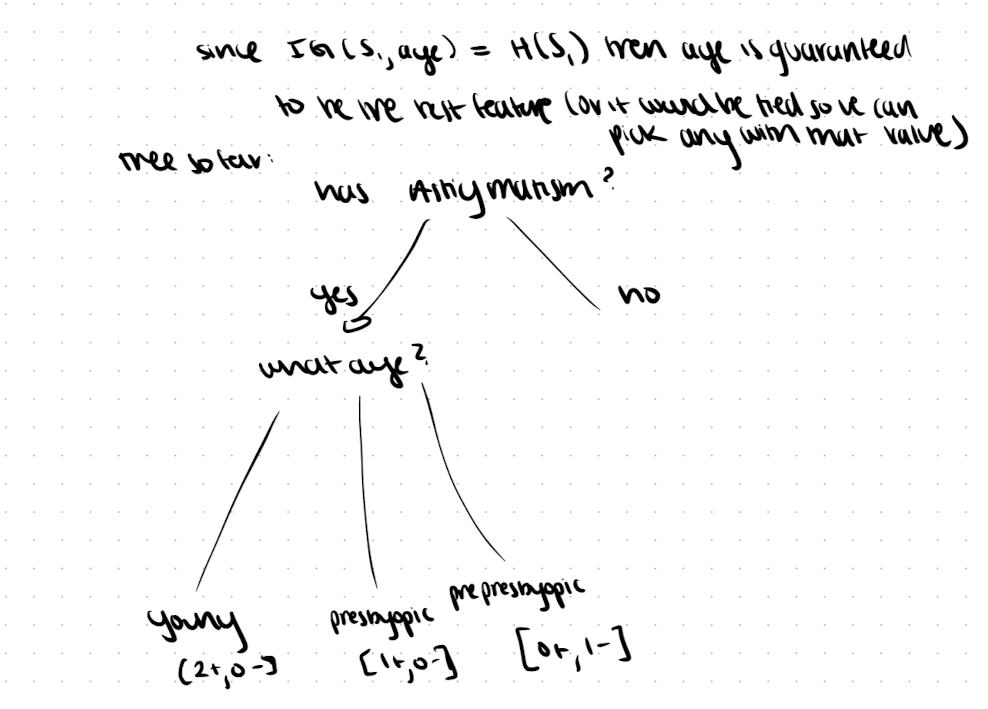 since IG(S₁, age) = H(S₁) then age is guaranteed
to be the best feature (or it would be tied so we can
pick any with that value)
tree so far:
has Astigmatism?
yes no
what age?
young presbyopic prepresbyopic
(2+,0-] [1+,0-] [0+,1-]